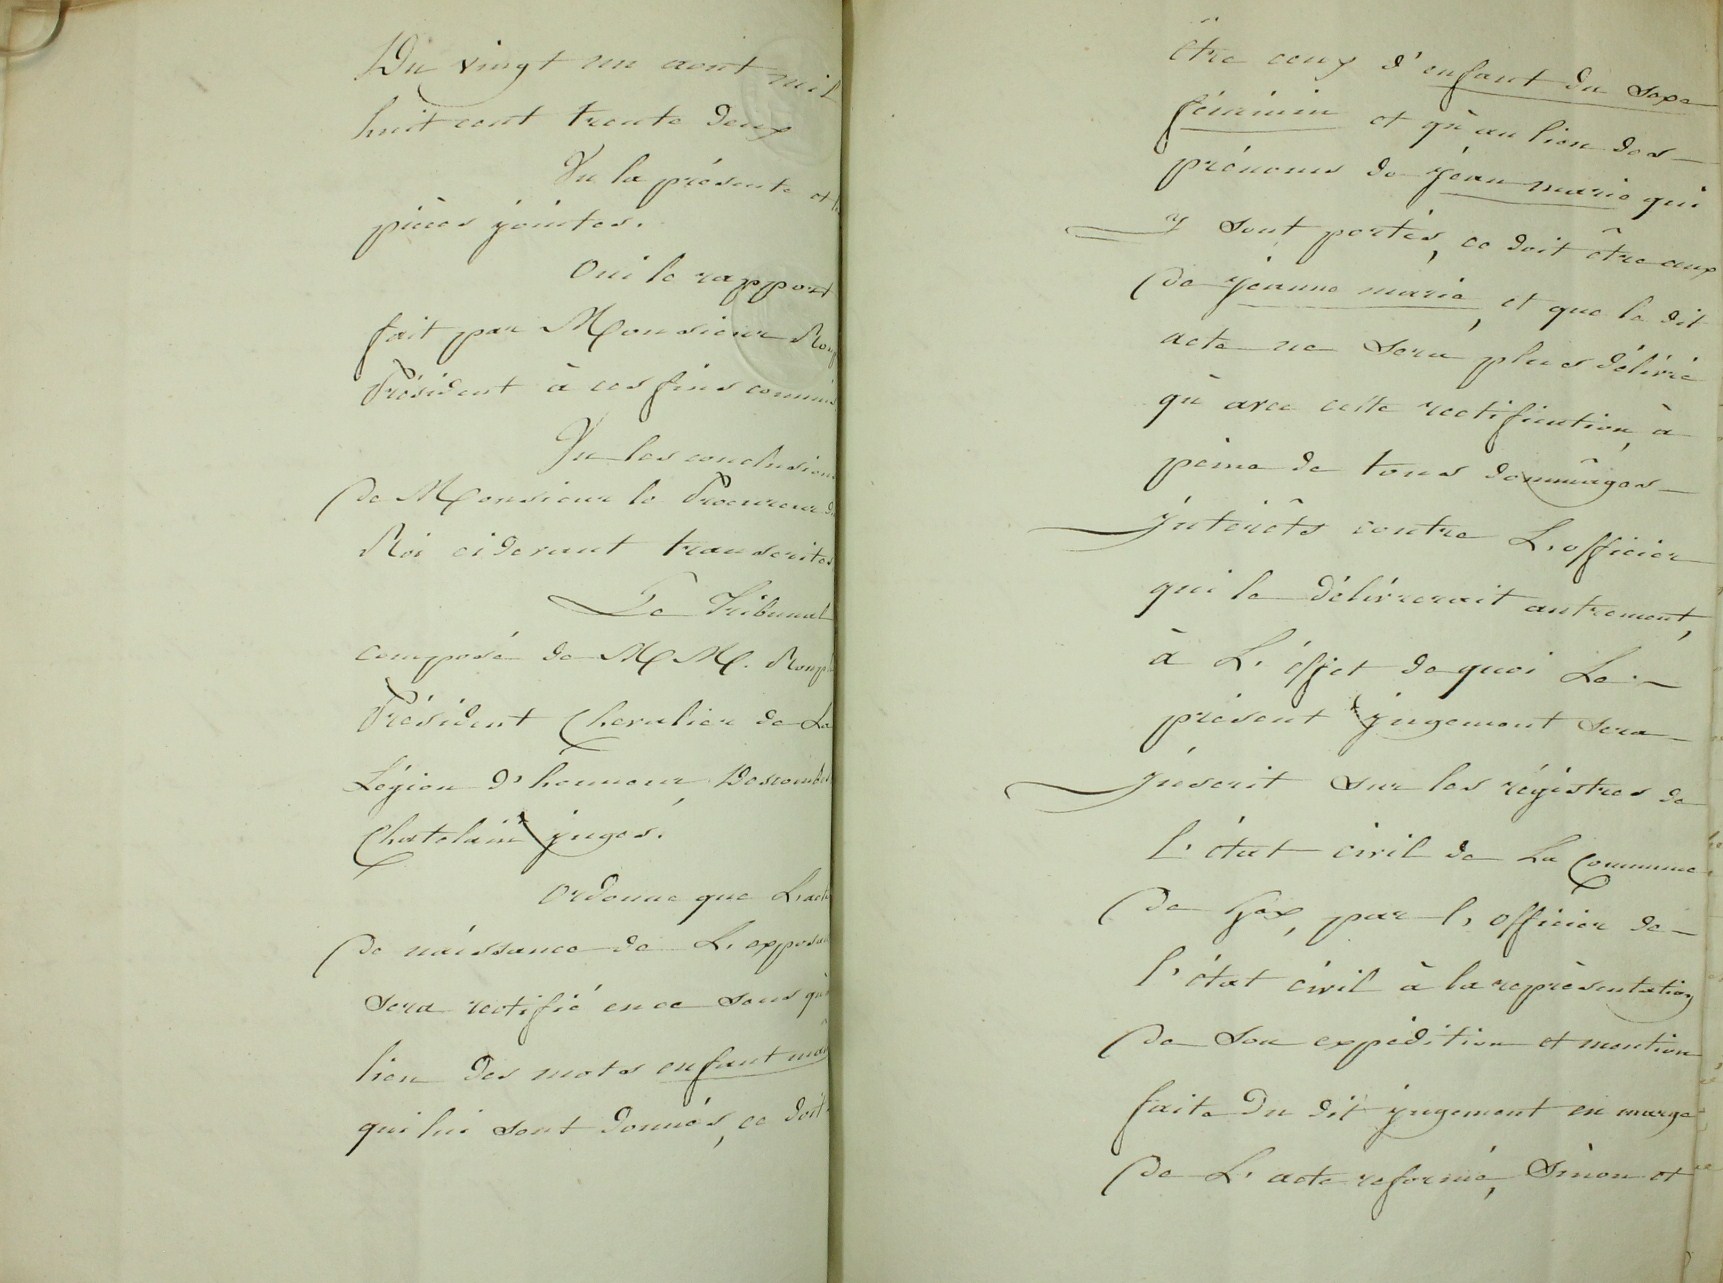 Du vingt un aout mil
huit cent trente deux
Vu la présente et
pièces jointes.
Oui le rapport
fait par Monsieur
Président à ces fins commis
Vu les conclusions
De Monsieur le Procureur du
Roi cidevant transcrites
Le Tribunal
composé de MM.
Président Chevalier de La
Légion d'honneur
Chatelain juges.
Ordonne que L'acte
De náissance de L'exposant
sera rectifié en ce sens qu'
lieu des mots enfant
qui lui sont donnés, ce doit
être ceux d'enfant du sexe
féminin et qu'au lieu des
prénoms de jean marie qui
y sont portés, ce doit être ceux
De jeanne marie, et que le dit
acte ne sera plus délivré
qu'avec cette rectification, à
peine de tous dommâges
jnterêts contre L'officier
qui le délivrerait autrement,
à L'éffet de quoi Le
présent jugement sera
jnscrit sur les régistres de
l'état civil de La Commune
De Gex, par l'officier de
l'état civil à la représentation
De son expédition et mention
faite Du dit jugement en marge
De L'acte reformé, Sinon et